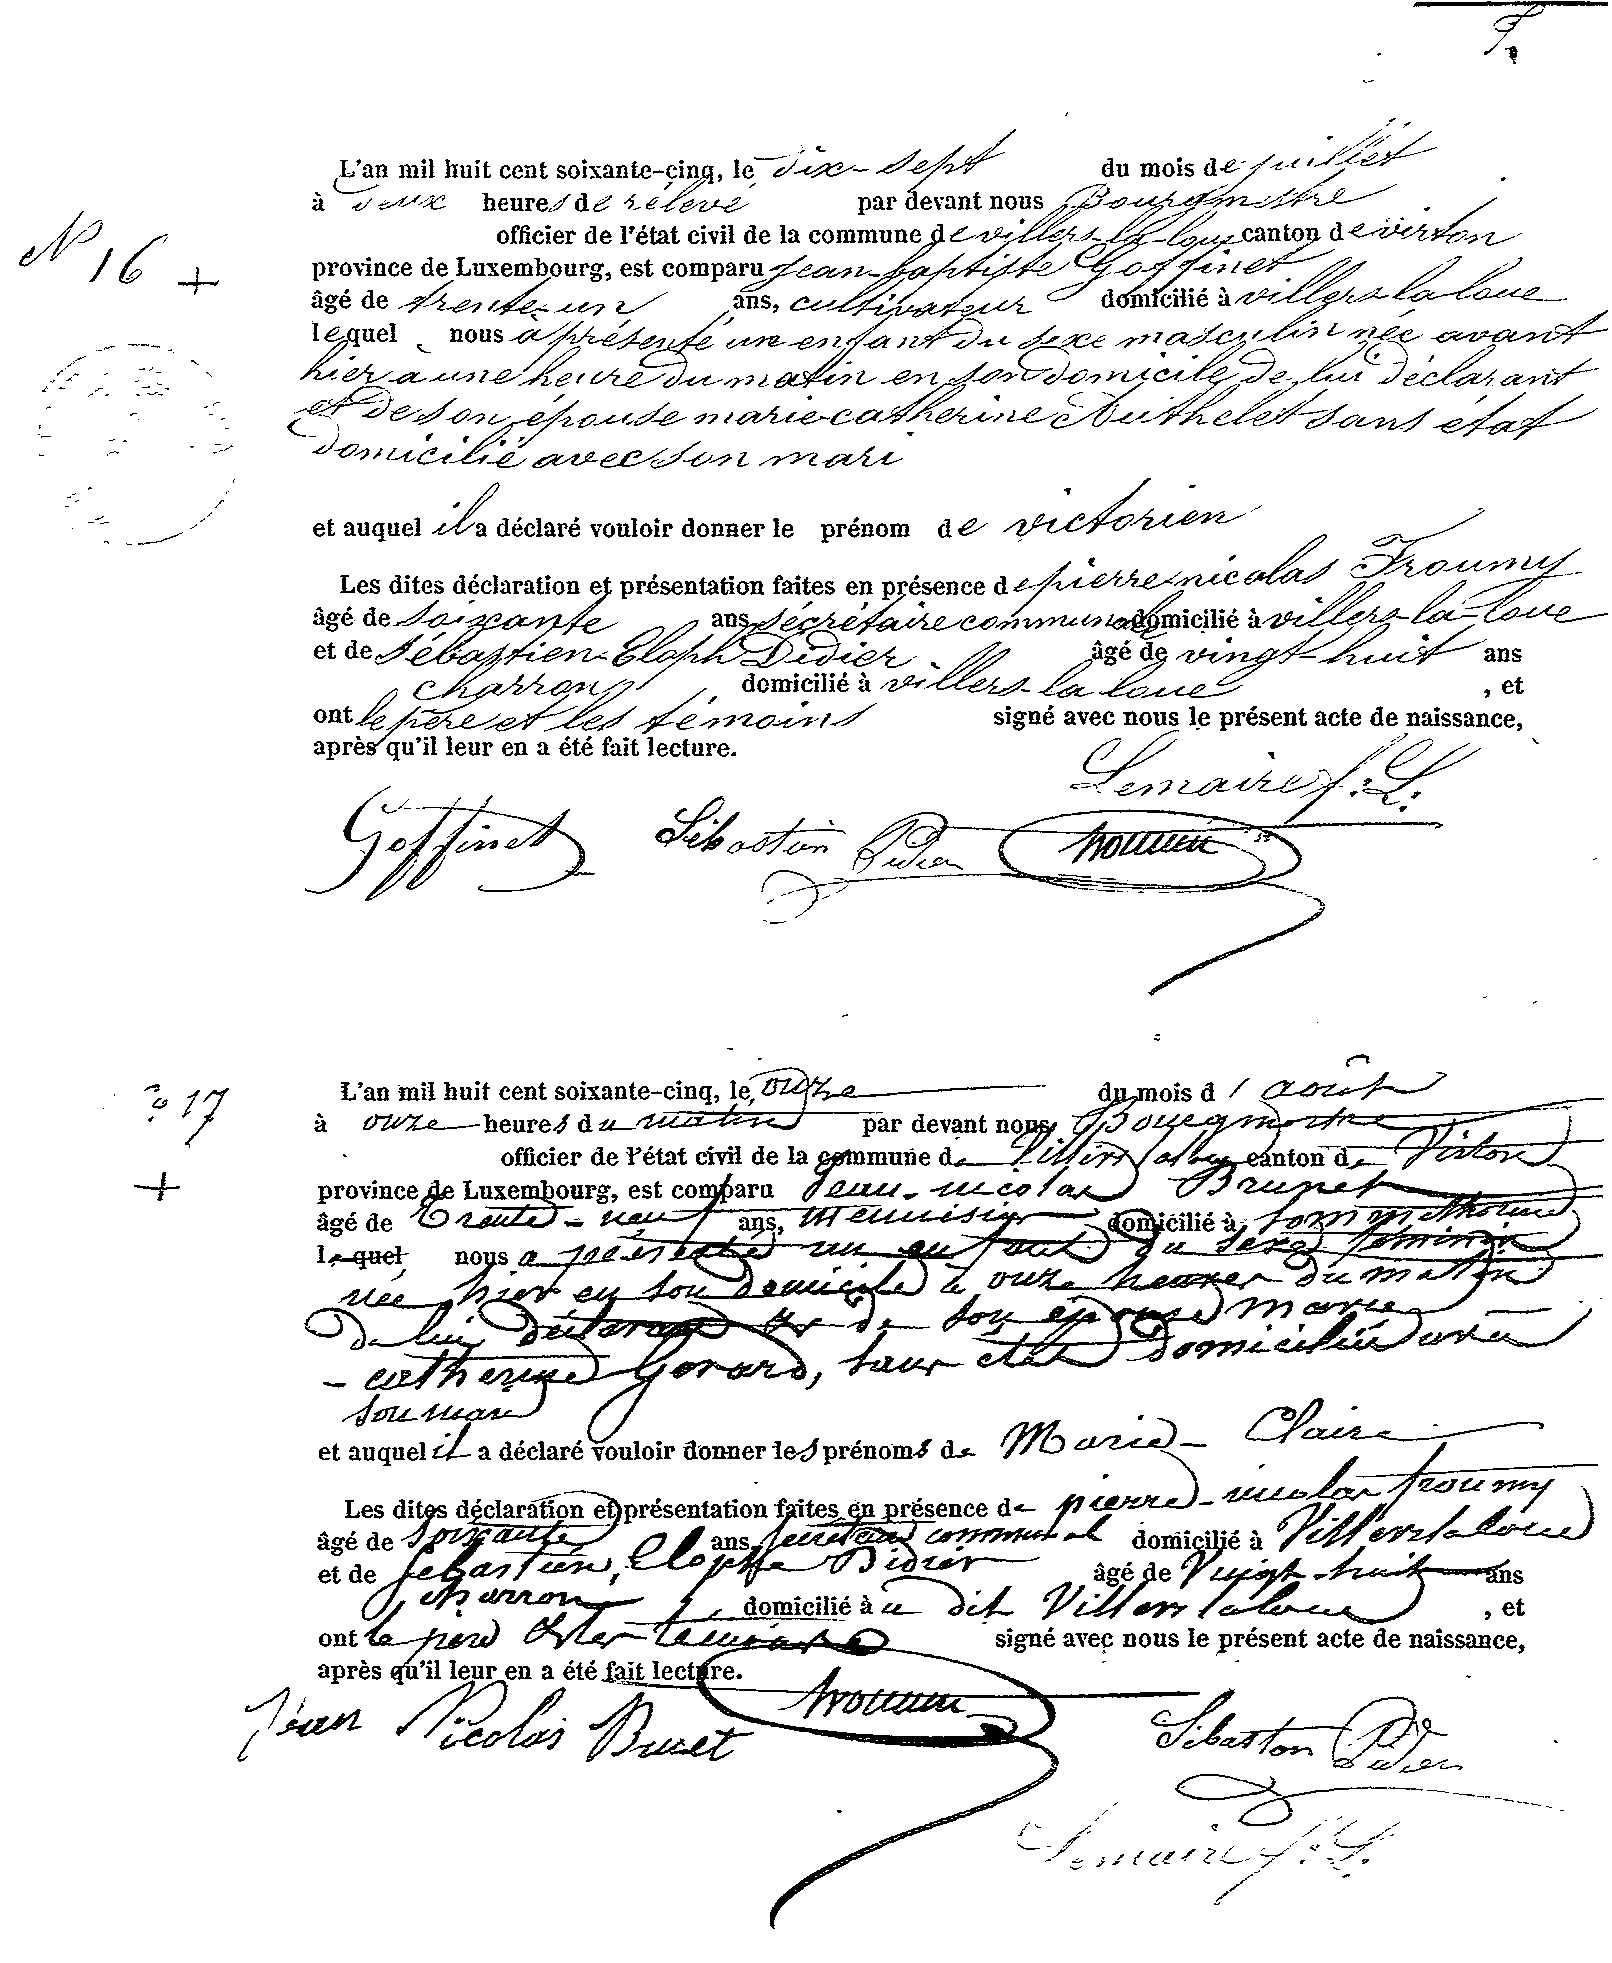 L'an mil huit cent soixante-cinq, le dix-sept du mois de juillet
à deux heures de relevé par devant nous Bourgmestre
officier de l'état civil de la commune de villers-la-loue canton de virton
N 16 +
province de Luxembourg, est comparu jean-baptiste Goffinet
âgé de trente-un ans, cultivateur domicilié à villers-la loue
lequel nous à présenté un enfant du sexe masculin née avant
hier a une heure du matin en son domicile de lui déclarant
et de son épouse marie catherine sans état
domicilié avec son mari
et auquel il a déclaré vouloir donner le prénom de victorien
Les dites déclaration et présentation faites en présence de pierre nicolas Froumy
âgé de soixante ans sécrétaire communal domicilié à villers-la-loue
et de Sébastien Eloph Didier âgé de vingt-huit ans
charron, domicilié à villers-la loue , et
ont le père et les témoins signé avec nous le présent acte de naissance,
après qu'il leur en a été fait lecture.
Lemaire f: L:
Goffinet Sébastien Didier
L'an mil huit cent soixante-cinq, le onze du mois d'août
n° 17
à onze heures du matin par devant nous Bourgmestre
officier de l'état civil de la commune de Villers la loue canton de Virton
+
province de Luxembourg, est comparu Jean-nicolas Brunet
âgé de Trente-neuf ans, Menuisier domicilié à Sommethonne
lequel nous a présenté un enfant du sexe féminin
née hier en son domicile à onze heures du matin
de lui déclarant et de son épouse marie
- catherine Gérard, sans état domiciliée avec
son mari
et auquel il a déclaré vouloir donner les prénoms de Marie - Claire
Les dites déclaration et présentation faites en présence de pierre-nicolas froumy
âgé de soixante ans, secrétaire communal domicilié à Villers la loue
et de Sébastien, Elophe Didier âgé de Vingt-huit ans
charron, domicilié à u dit Villers la loue , et
ont le père et les témoins signé avec nous le présent acte de naissance,
après qu'il leur en a été fait lecture.
Jean Nicolas Brunet Sébastien Didier
Lemaire f: L: